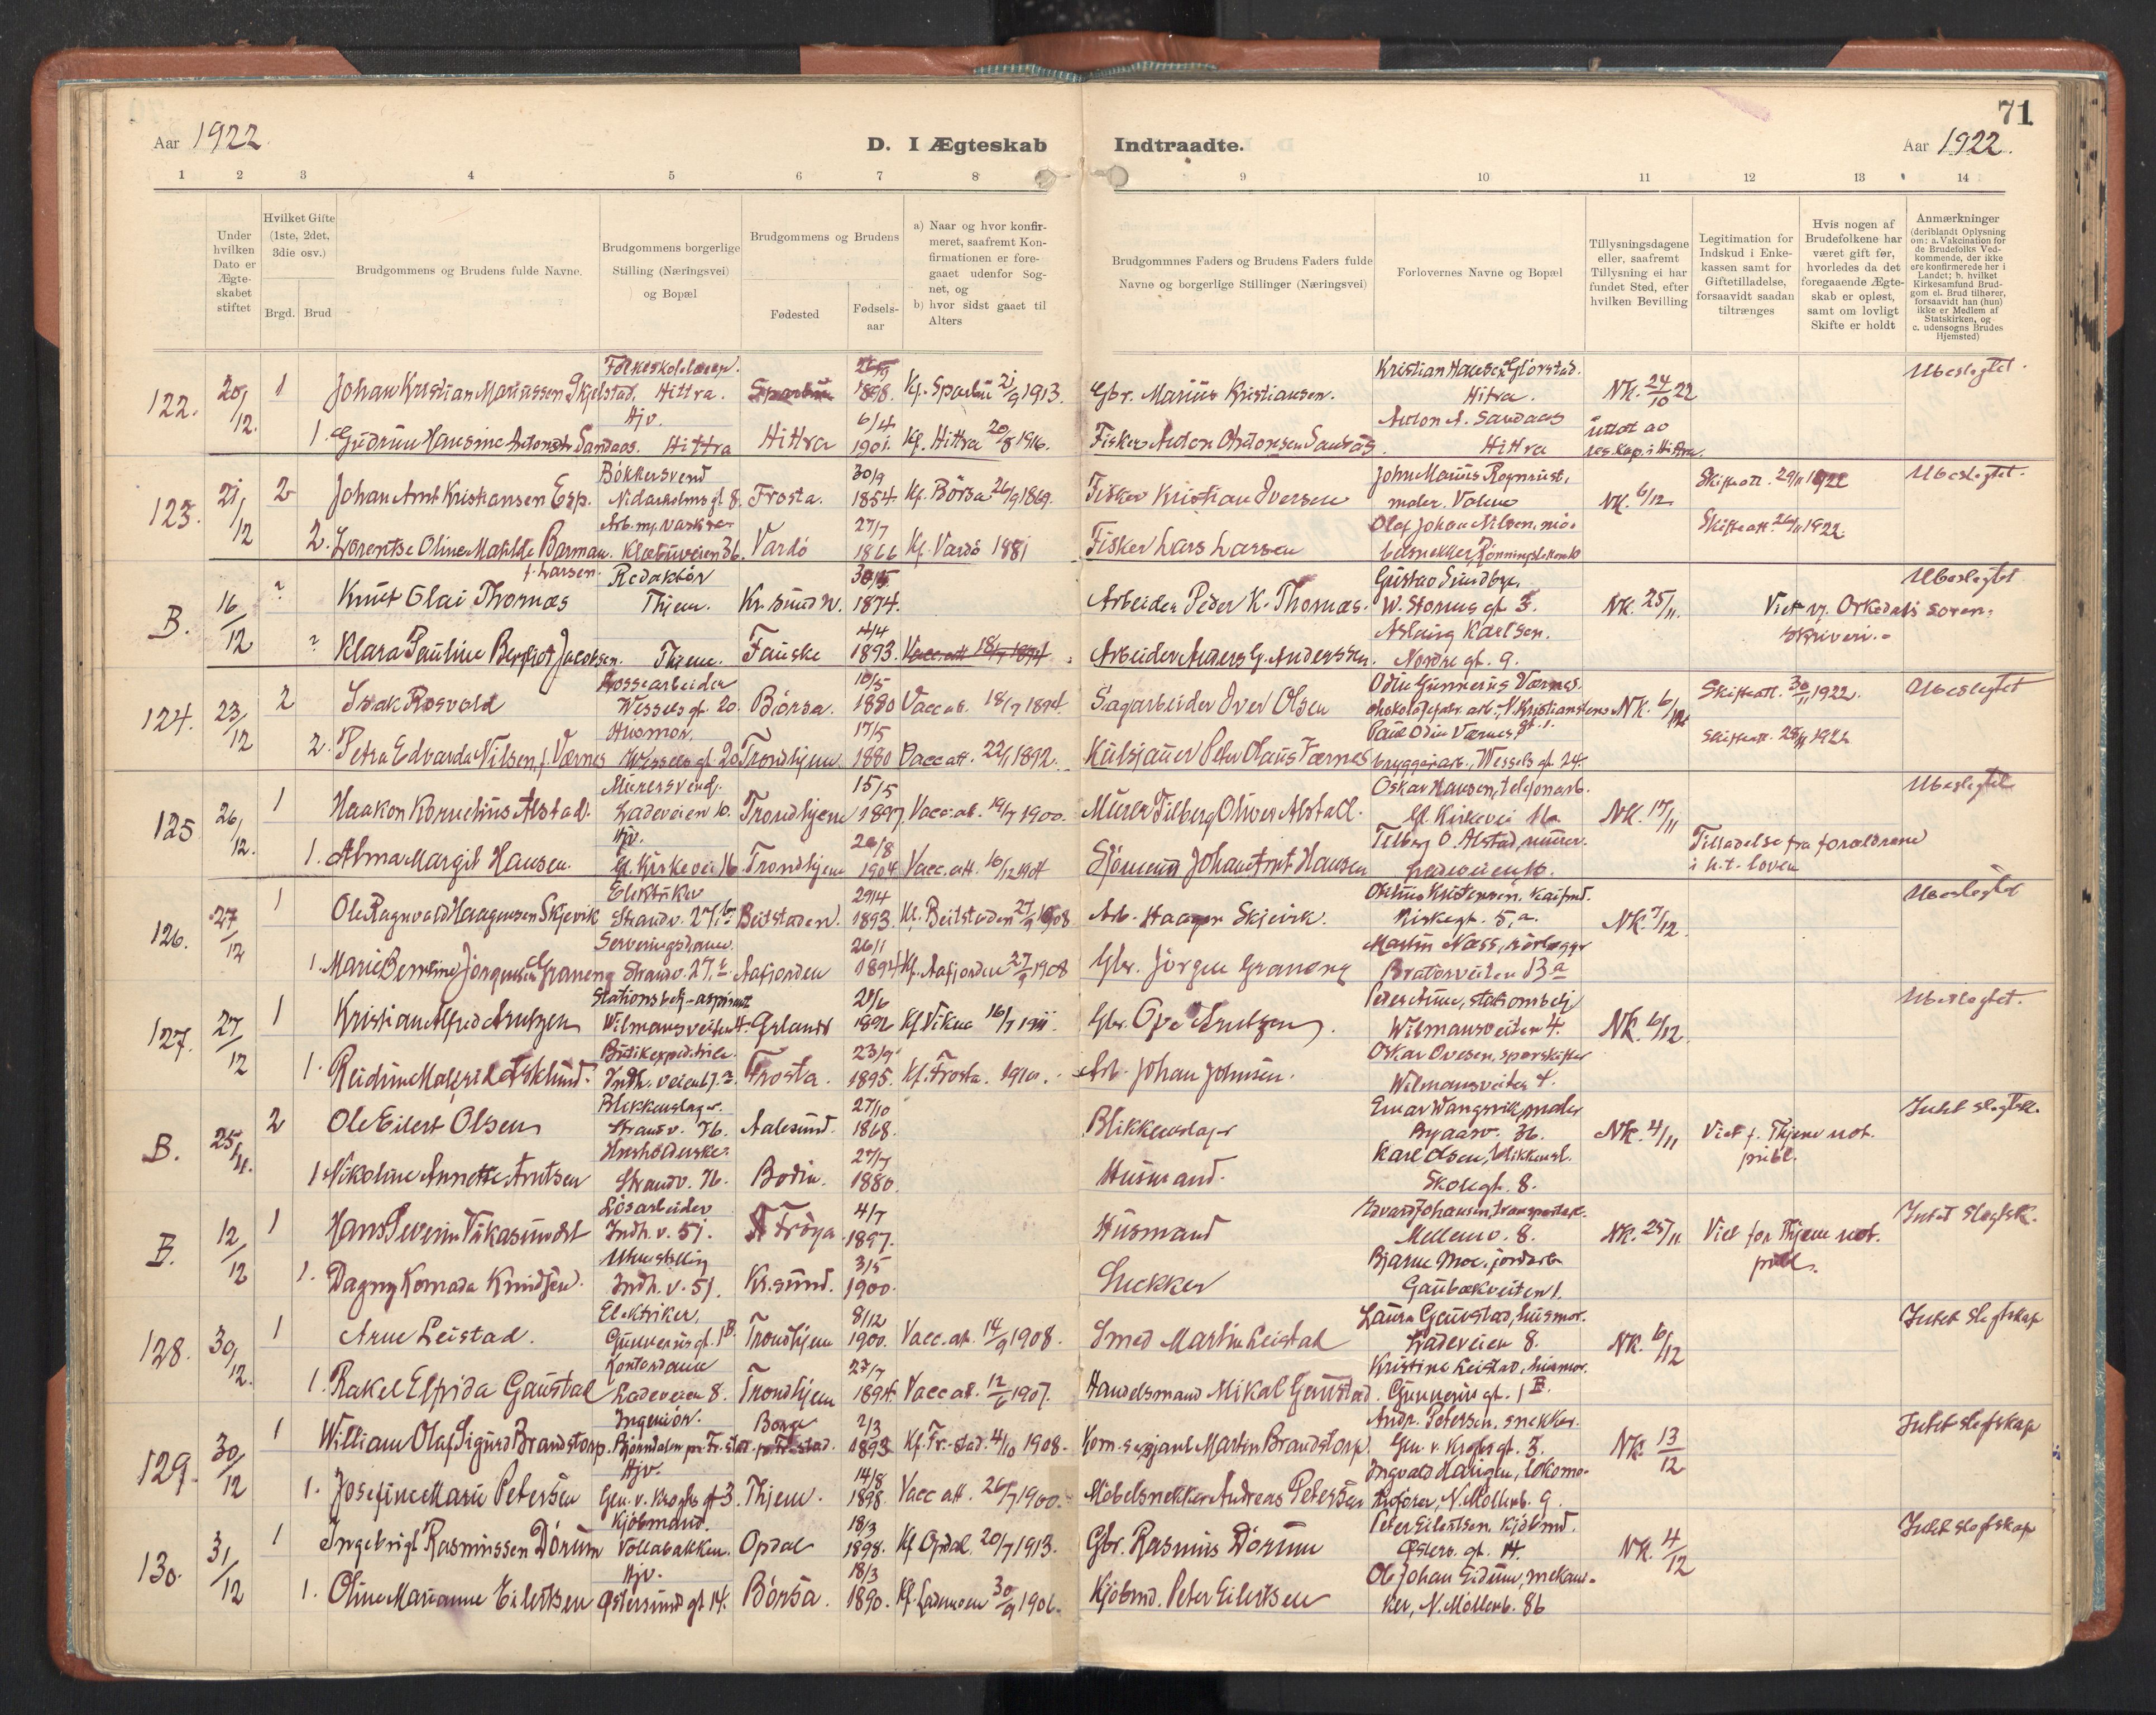 71
Aar 1922.
D. I Ægteskab Indtraadte.
Aar 1922.
1 2 3 4 5 6 7 8 9 10 11 12 13 14
Under hvilken Dato er Ægteskabet stiftet
Hvilket Gifte (1ste, 2det, 3die osv.)
Brgd. Brud
Brudgommens og Brudens fulde Navne.
Brudgommens borgerlige Stilling (Næringsvei) og Bopæl
Brudgommens og Brudens
Fødested
Fødsels-aar
a) Naar og hvor konfir-meret, saafremt Kon-firmationen er fore-gaaet udenfor Sog-net, og
b) hvor sidst gaaet til Alters
Brudgommnes Faders og Brudens Faders fulde Navne og borgerlige Stillinger (Næringsvei)
Forlovernes Navne og Bopæl
Tillysningsdagene eller, saafremt Tillysning ei har fundet Sted, efter hvilken Bevilling
Legitimation for Indskud i Enke-kassen samt for Giftetilladelse, forsaavidt saadan tiltrænges
Hvis nogen af Brudefolkene har været gift før, hvorledes da det foregaaende Ægte-skab er opløst, samt om lovligt Skifte er holdt
Anmærkninger (deriblandt Oplysning om: a. Vakcination for de Brudefolks Ved-kommende, der ikke ere konfirmerede her i Landet; b. hvilket Kirkesamfund Brud-gom el. Brud tilhører, forsaavidt han (hun) ikke er Medlem af Statskirken, og c. udensogns Brudes Hjemsted)
122. 20/12. 1 Johan Kristian Mariussen Hittra. Sparbu 1898. Kf. Sparbu 21/9 1913. Gbr. Marius Kristiansen. Kristian Hansen Glørstad. Hitra. NK. 24/10 22 Ubeslegtet.
1. Gudrun Hansine Sandaas. Hjv. Hittra Hittra 6/4 1901. Kf. Hittra 20/8 1916. Fisker Anton A. Sandaas Hittra res. kap. i Hittra.
123. 21/12 2 Johan Arnt Kristiansen Esp. Bökkersvend Nidarholms gt 8. Frosta. 30/9 1854 Kf. Börsa 26/9 1869. Fisker Kristian Iversen John Marius Rognrust, maler. NK. 6/12 Skifteatt. 29/11 1922 Ubeslegtet.
2. Lorentse Oline Matilde Barman f. Larsen. Klæbuveien 36. Vardö 27/7 1866 Kf. Vardö 1881 Fisker Lars Larsen Olaf Johan Nilsen, Skifteatt. 1922.
B. 16/12 ? Knut Olai Thomæs Redaktör Thjem. Kr.sund N. 30/5 1874. Arbeider Peder K. Thomæs. Gustav Sundbye, NK. 25/11. Viet v. Orkedals soren-skriveri. Ubeslegtet
? Klara Pauline Bergliot Jacobsen. Thjem. Fauske 4/4 1893. Vacc.att 18/7 1894 Arbeider Anders G. Anderssen. Aslaug Karlsen. Nordre gt. 9.
124. 23/12 2 Isak Rosvold Wessels gt. 20. Börsa. 10/5 1880 Vacc.at. 18/7 1894. Sagarbeider Iver Olsen Odin Gunnerius Værnes. NK. 6/12 Skifteatt. 30/11 1922. Ubeslegtet
2. Petra Edvarda Nilsen, f. Værnes Husmor. Wessels gt 20 Trondhjem 17/5 1880 Vacc att. 22/1 1892. Kulsjauer Peter Olaus Værnes Paul Odin Værnes, bryggeriarb., Wessels gt. 24. Skifteatt. 28/11 1922
125 26/12. 1 Haakon Kornelius Alstad. Murersvend. Ladeveien 10. Trondhjem 15/5 1897. Vacc.at. 19/7 1900. Murer Tilberg Oliver Alstad. Oskar Hansen, telefonarb. Gl. Kirkevei NK. 17/11 Ubeslegtet
1. Alma Margit Hansen. Hjv. Gl. Kirkevei 16. Trondhjem 20/8 1904 Vacc. att. 16/12 1904 Sjömand Johan Arnt Hansen Tilberg O. Alstad, murer. Ladeveien 10. Tilladelse fra forældrene i h.t. loven
126. 27/12 1 Ole Ragnvald Haagensen Skjevik Elektriker Strandv. 27. Beitstaden. 29/4 1893. Kf. Beitstaden 27/9 1908 Arb. Haagen Skjevik. NK. 7/12. Ubeslegtet
1. Marie Jörgensen Graneng Serveringsdame. Strandv. 27. Aafjorden 26/1 1894 Kf. Aafjorden 27/9 1908 Gbr. Jörgen Graneng Martin Næss, rörlægger Bratörveiten 13a
127. 27/12 1 Kristian Alfred Arntzen Stationsbetj.-aspirant Wilmansveiten 4. 21/6 1892 Kf. Vikna 16/7 1911. Gbr. Ove Arntzen. Peter Aune, stationsbetj Wilmansveiten 4. NK. 6/12. Ubeslegtet.
1. Reidun Asklund. Butikexpeditrice. Frosta. 23/9 1895. Kf. Frosta. 1910. Arb. Johan Johnsen. Oskar Ovesen, sporskifter Wilmansveiten 4.
B. 25/11. 2 Ole Eilert Olsen Blikkenslager. Strandv. 76. Aalesund. 27/10 1868. Blikkenslager Einar Wangsvik, maler Byaasv. 36. NK. 4/11 Viet f. Thjem not. publ. Intet slegtsk.
1 Nikoline Annette Arntsen Husholderske. Strandv. 76. Bodin. 27/7 1880. Husmand. Karl Olsen, blikkensl. Skolegt. 8.
B. 12/12 1 Hans Severin Vikasundet Lösarbeider Indh. v. 51. Fröya 4/7 1897. Husmand Edvard Johansen, Mellemv. 8. NK. 25/11 Viet for Thjem not. publ. Intet slegtsk.
1. Dagny Komada Knudsen. Uten stilling Indh. v. 51. Kr.sund. 3/5 1900. Snekker Bjarne Moe, jordarb. Gaubækveiten 1.
128. 30/12. 1 Arne Leistad. Elektriker, Gunnerusgt. 1B. Trondhjem 8/12 1900. Vacc. att. 14/9 1908. Smed Martin Leistad Laura Gaustad, husmor. Ladeveien 8. NK. 6/12 Intet slegtskap
1. Rakel Elfrida Gaustad Kontordame Ladeveien 8. Trondhjem 27/7 1894. Vacc at. 12/6 1907. Handelsmand Mikal Gaustad. Kristine Leistad, husmor. Gunnerus gt. 1B.
129. 30/12 1 William Olaf Sigurd Brandstorp. Ingeniör. Borge pr. Fr.stad. 2/3 1893 Kf. Fr.stad. 4/10 1908. Kom.sersjant Martin Brandstorp. Andr. Petersen, snekker. Gen. v. Kroghs gt. 3. NK. 13/12 Intet slegtskap
1. Josefine Marie Petersen Hjv. Gen. v. Kroghs gt 3. Thjem. 14/8 1898. Vacc att. 26/7 1900. Möbelsnekker Andreas Petersen Ingvald Haugen, lokomo-tivförer, N. Möllenb. 9.
130. 31/12 1 Ingebrigt Rasmussen Dörum Kjöbmand. Vollabakken. Opdal 18/3 1898. Kf Opdal. 20/7 1913. Gbr. Rasmus Dörum Peter Eilertsen, kjöbmd. Østers. gt. 14. NK. 4/12 Intet slegtskap
1. Oline Marianne Eilertsen Hjv. Østersunds gt 14. Börsa. 18/3 1890. Kf. Lademoen 30/9 1906. Kjöbmd. Peter Eilertsen Ole Johan Eidum, mekani-ker, N. Möllenb. 86